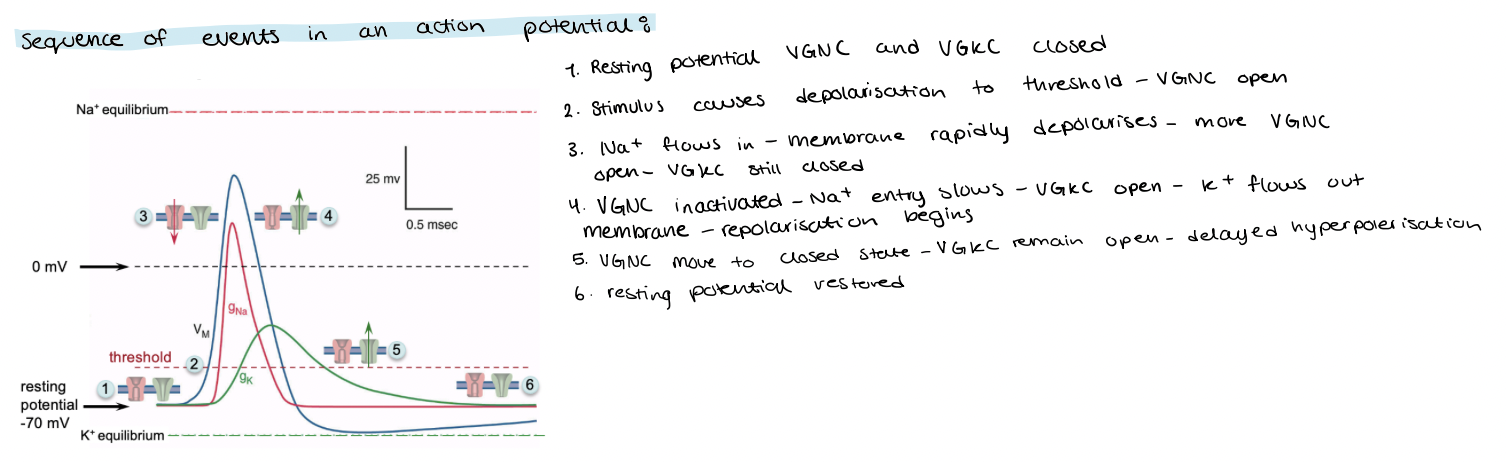 Sequence of events in an action potential:
1. Resting potential VGNC and VGKC closed
2. Stimulus causes depolarisation to threshold - VGNC open
3. Na+ flows in - membrane rapidly depolarises - more VGNC
open - VGKC still closed
4. VGNC inactivated - Na+ entry slows - VGKC open - K+ flows out
membrane - repolarisation begins
5. VGNC move to closed state - VGKC remain open - delayed hyperpolerisation
6. resting potential restored
Na+ equilibrium
25 mv
0.5 msec
3
4
0 mV
gNa
VM
threshold
2
5
gK
resting
potential
-70 mV
1
6
K+ equilibrium